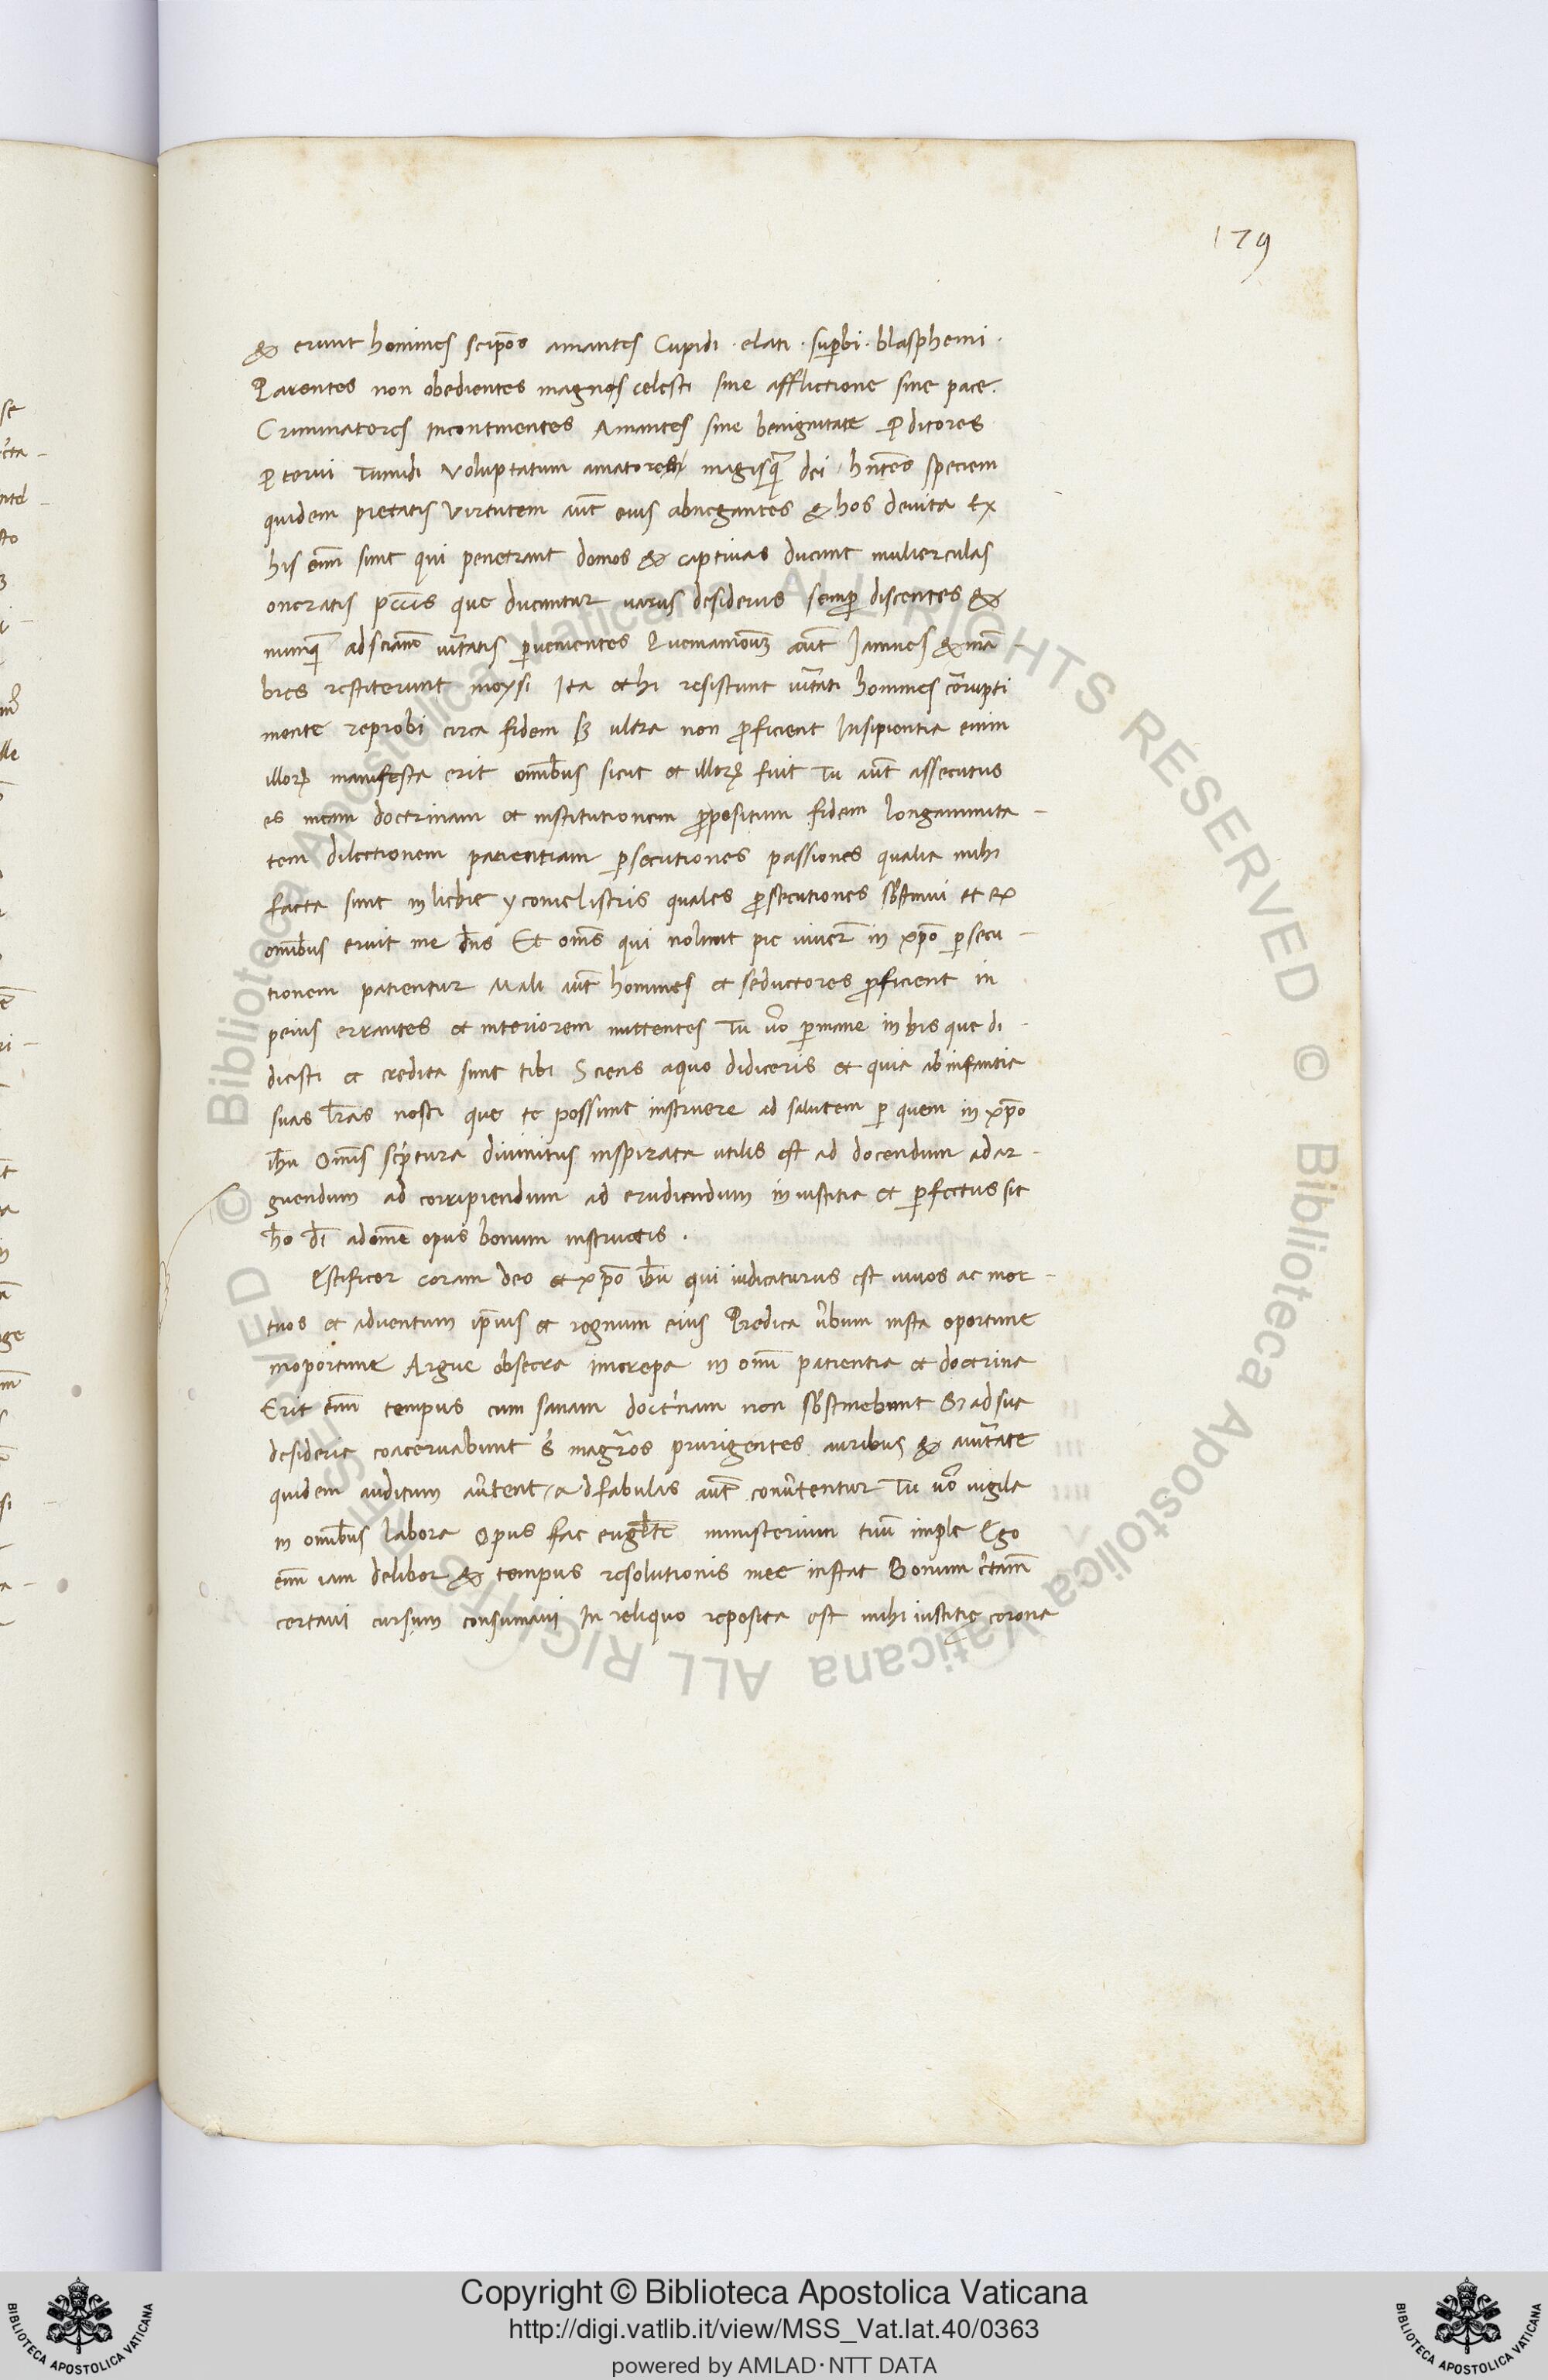 179
& erunt homines seip̄os amantes Cupidi · elati · sup̱bi · blasphemi ·
Parentes non obedientes magnos celesti sine afflictione sine pace.
Criminatores incontinentes Amantes sine benignitate ꝓditores
ꝓterui Tumidi voluptatum amatores magisq̄ dei hn̄tes speciem
quidem pietatis virtutem aut̄ eius abnegantes & hos deuita Ex
his em̄ sunt qui penetrant domos & captiuas ducunt mulierculas
oneratis pcc̄is que ducuntur uariis desideriis semp̱ discentes &
numq̄ ad scian̄ uītatis ꝑuenientes Quemamodūm aut̄ Jamnes & mā
bres restiterunt moysi Ita et hi resistunt uītati homines coꝛrupti
mente reprobi circa fidem sꝫ ultra non ꝓficient Insipientia enim
illoꝝ manifesta erit omīb̄us sicut et illoꝝ fuit Tu aut̄ assecutus
es meam doctrinam et institutionem ꝓpositum fidem longanimita-
tem dilectionem patientiam ꝑsecutiones passiones qualia mihi
facta sunt in lichie yconie listris quales ꝑsecutiones sb̄stinui et ex
omīb̄us eruit me dn̄s Et om̄s qui nolunt pie uiuer̄ in xp̄o ꝑsecu-
tionem patientur Mali aut̄ homines et seductores ꝓficient in
peius errantes et interiorem mittentes Tu ūo ꝑmane in his que di-
dicisti et credita sunt tibi Sciens aquo didiceris et quia ab infantia
suas l̄ras nosti que te possunt instruere ad salutem ꝑ quem in xp̄o
ih̄u Om̄is scp̄tura diuinitus inspirata utilis est ad docendum ad ar-
guendum ad corripiendum ad erudiendum in iustitia et ꝑfectus sit
h̄o d̄i ad om̄e opus bonum instructis .
Estificor coram deo et xp̄o ih̄u qui iudicaturus est uiuos ac mor-
tuos et aduentum ip̄ius et regnum eius Predica ūbum insta oportune
inoportune Argue obsecra increpa in om̄i patientia et doctrina
Erit em̄ tempus cum sanam doct̄nam non sb̄stinebunt Sꝫ ad sua
desideria coaceruabunt s̄ magr̄os prurigentes auribus & auītate
quidem auditum aūtent, a dfabulas aut̄ conūtentur Tu ūo uigila
in omīb̄us labora Opus fac eugl̄te ministerium tuū imple Ego
em̄ iam delibor & tempus resolutionis mee instat Bonum c̄tam̄
certaui cursum consumaui In reliquo reposita est mihi iustitie corona
se
Copyright © Biblioteca Apostolica Vaticana
http://digi.vatlib.it/view/MSS_Vat.lat.40/0363
powered by AMLAD·NTT DATA
BIBLIOTECA APOSTOLICA VATICANA
BIBLIOTECA APOSTOLICA VATICANA
© Biblioteca Apostolica Vaticana ALL RIGHTS RESERVED © Biblioteca Apostolica Vaticana ALL RIGHTS RESERVED